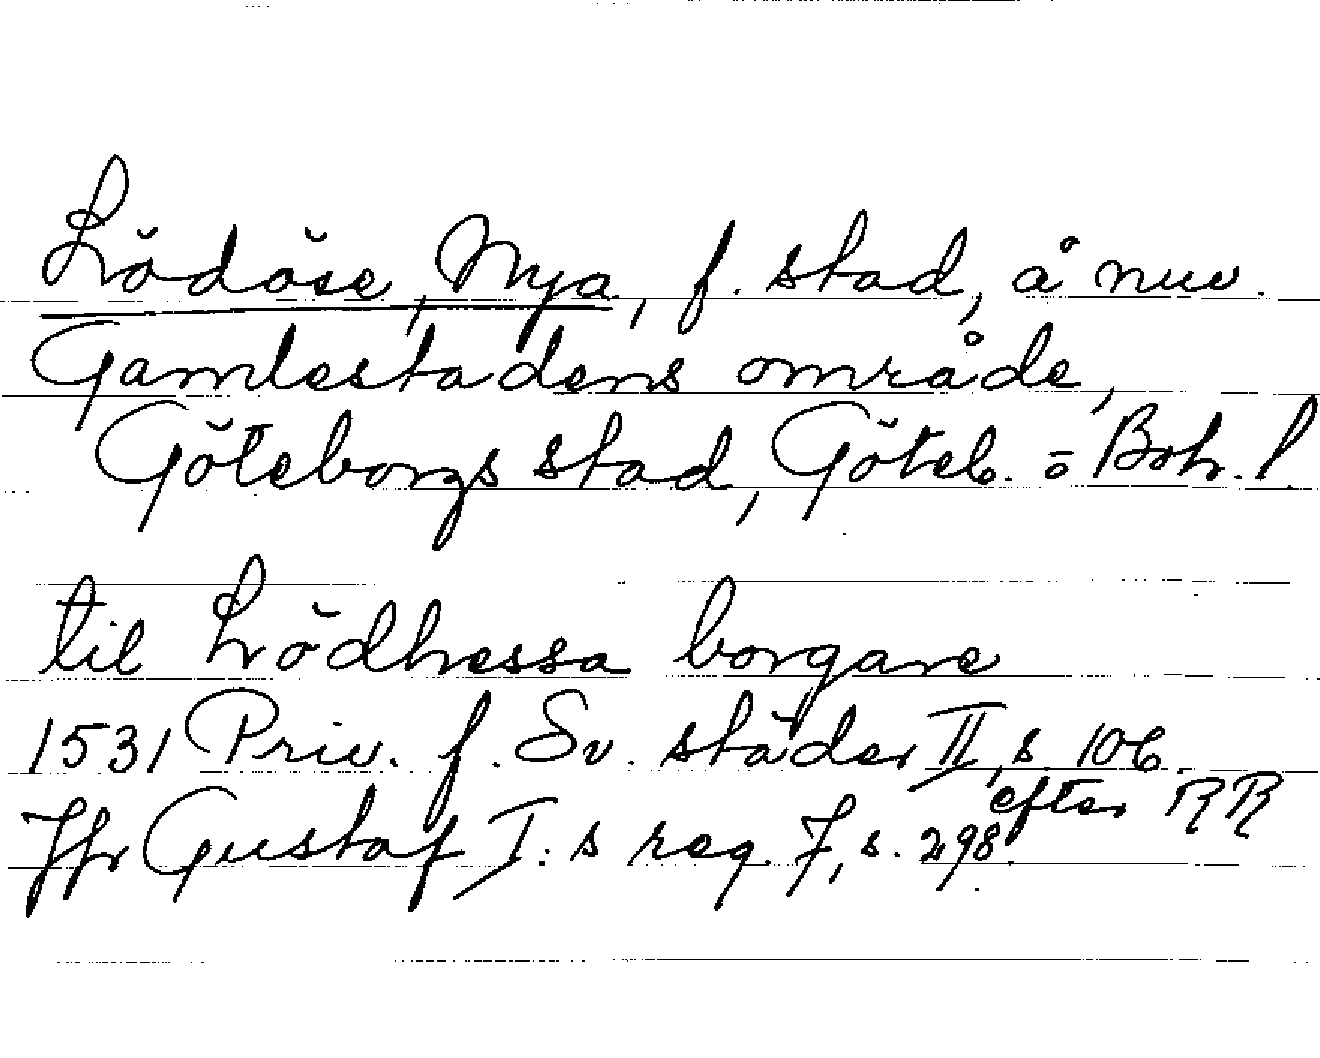 Lödöse, Nya, f. stad, å nuv.
Gamlestadens område,
Göteborgs stad, Göteb. o Boh. l.
til Lödhessa borgare
1531 Priv. f. Sv. städer II, s. 106.
efter RR
Jfr Gustaf I:s reg. 7, s. 298.